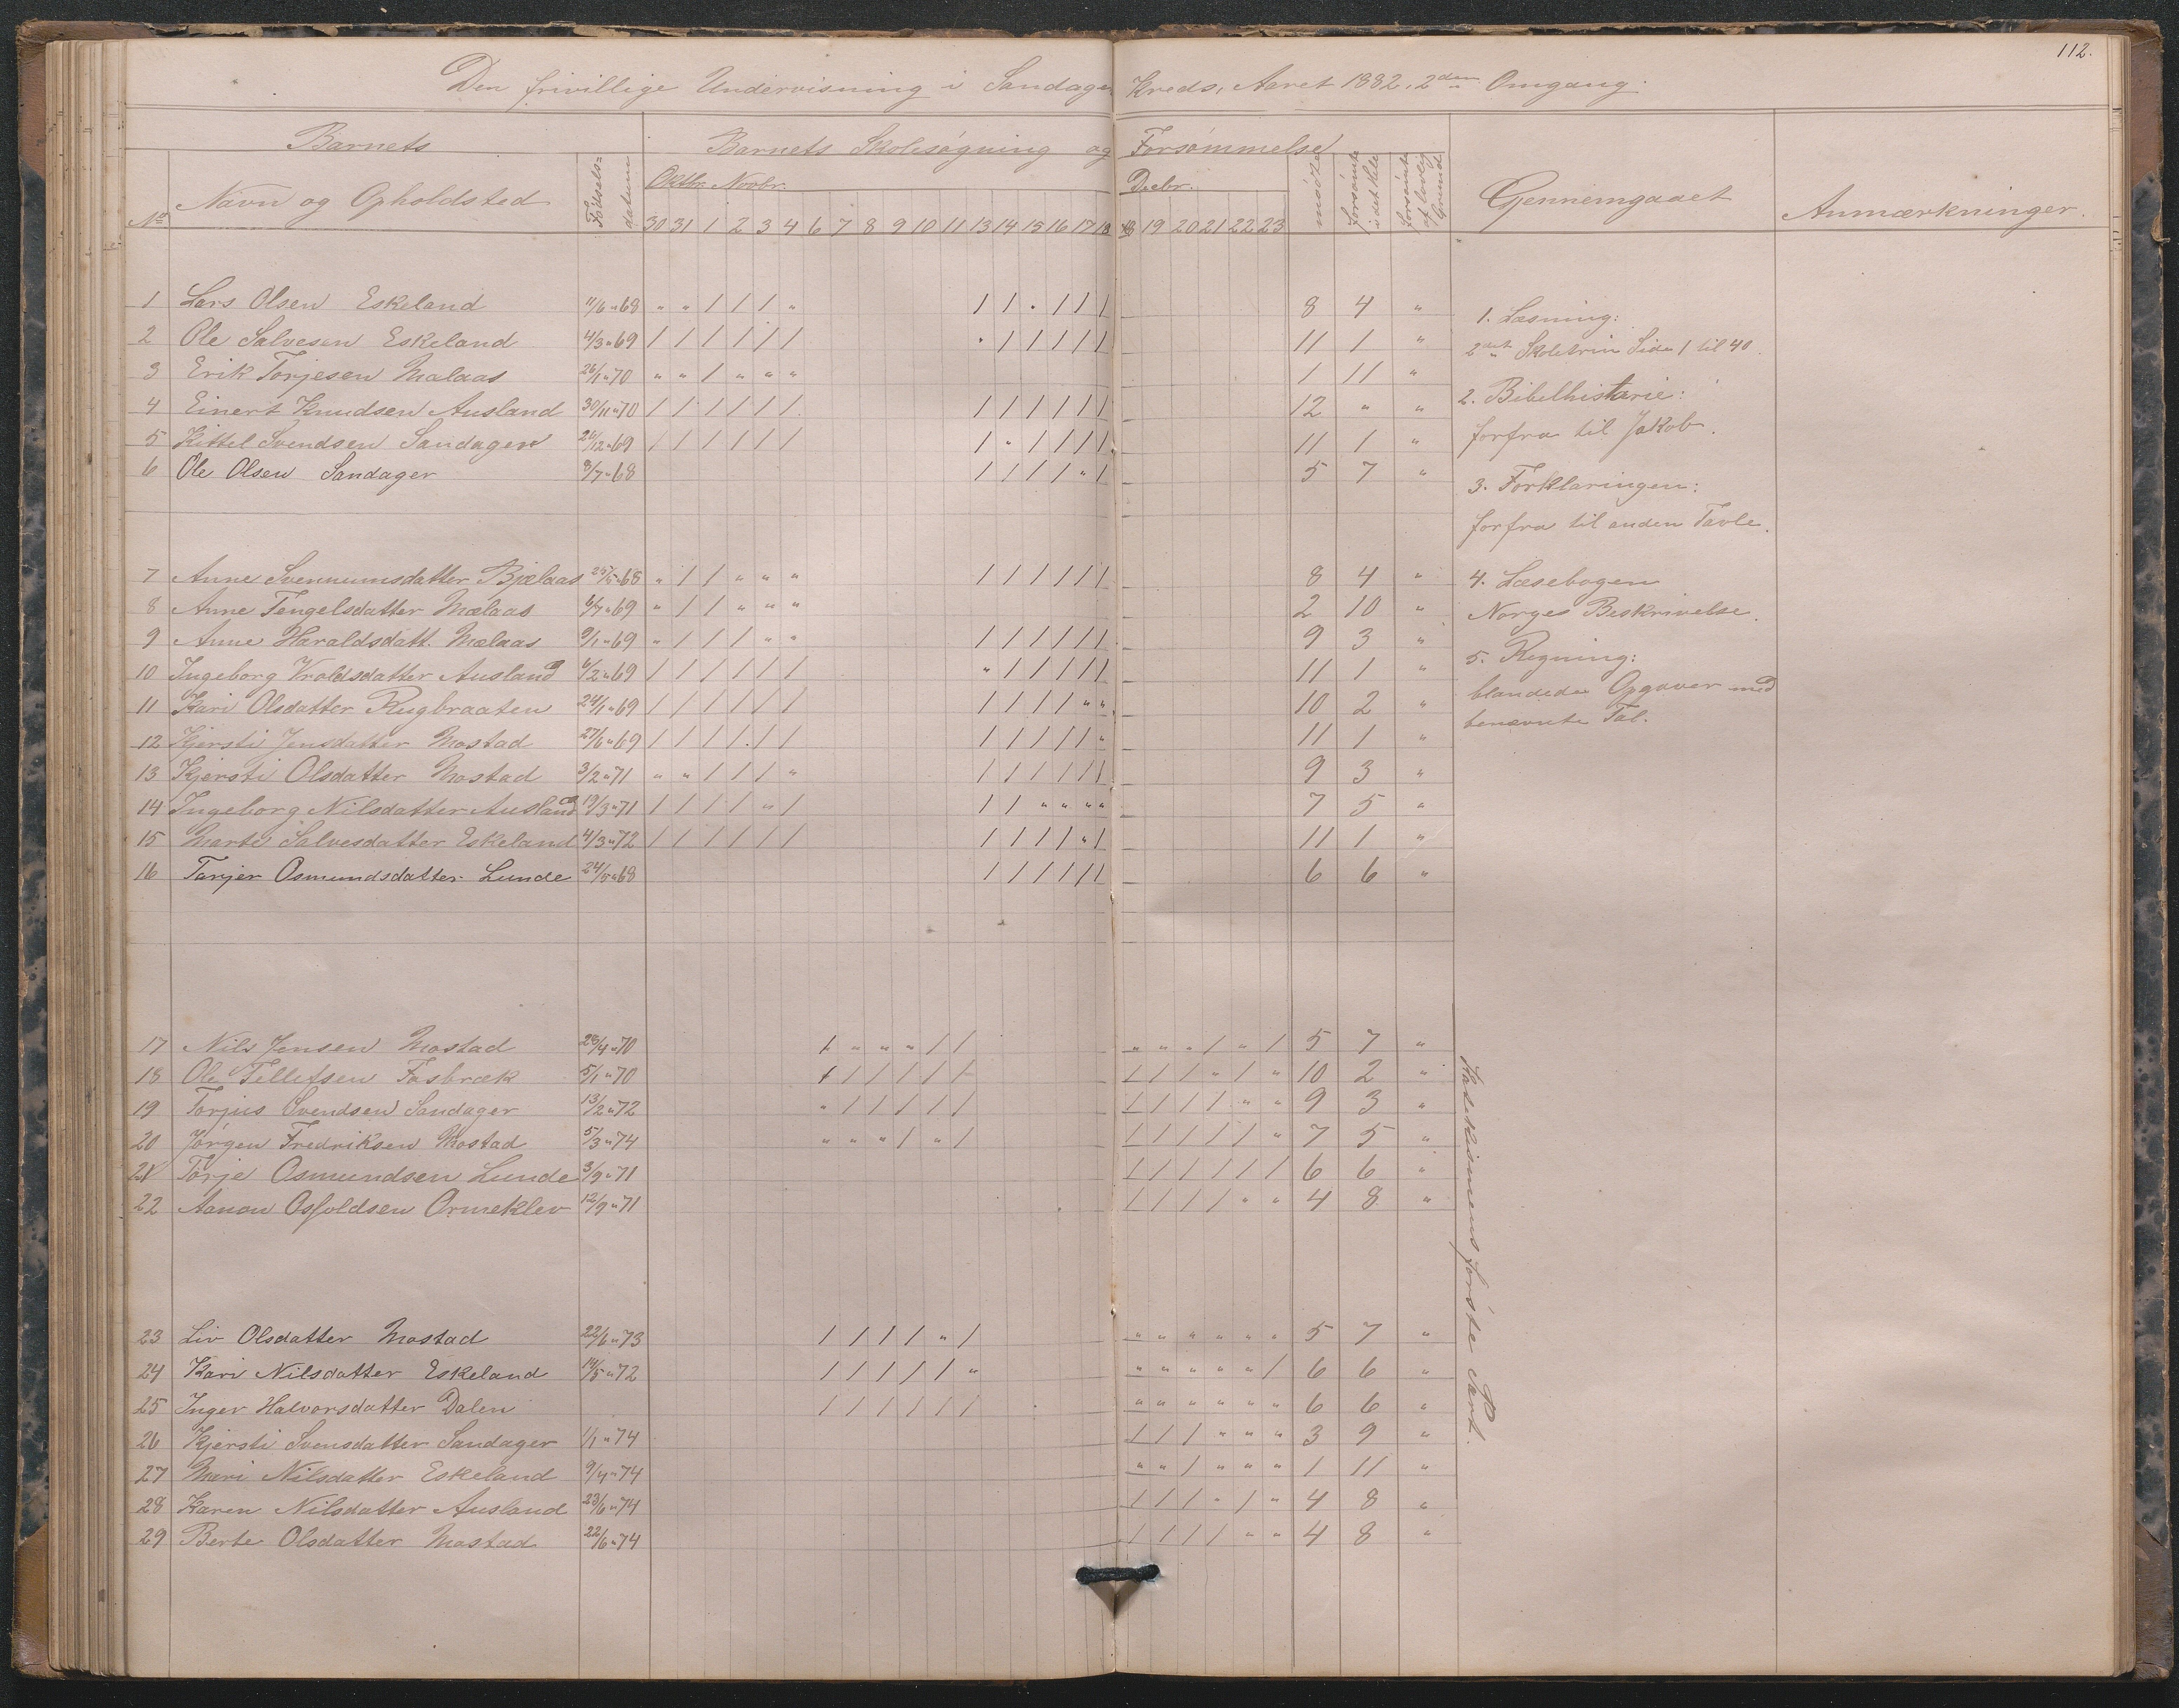 112.
Den frivillige Undervisning i Sandager Kreds, Aaret 1882, 2den Omgang.
Barnets
Barnets Skolesøgning og Forsømmelse
No Navn og Opholdsted
Fødsels=datum
Oktbr. Novbr.
Decbr.
30 31 1 2 3 4 6 7 8 9 10 11 13 14 15 16 17 18
18 19 20 21 22 23
mødte
forsømte i det Hele
forsømte af lovlig Grund
Gennemgaaet
Anmærkninger.
1 Lars Olsen Eskeland 11/6 " 68 " " / / / " / / " / / / 8 4 "
2 Ole Salvesen Eskeland 4/3 " 69 / / / / / / " / / / / / 11 1 "
3 Erik Torjesen Mælaas 26/1 " 70 " " / " " " 1 11 "
4 Einert Knudsen Ausland 30/11 " 70 / / / / / / / / / / / / 12 " "
5 Kittel Svendsen Sandager 26/12 " 69 / / / / / / / " / / / / 11 1 "
6 Ole Olsen Sandager 8/7 " 68 / / / / " / 5 7 "
7 Anne Svennumsdatter Bjelaas 25/5 " 68 " / / " " " / / / / / / 8 4 "
8 Anne Tengelsdatter Mælaas 6/7 " 69 " / / " " " 2 10 "
9 Anne Haraldsdatt. Mælaas 9/1 " 69 " / / / " " / / / / / / 9 3 "
10 Ingeborg Vroldsdatter Ausland 6/2 " 69 / / / / / / " / / / / / 11 1 "
11 Kari Olsdatter Rugbraaten 24/1 " 69 / / / / / / / / / / " " 10 2 "
12 Kjersti Jensdatter Mostad 27/6 " 69 / / / / / / / / / / / " 11 1 "
13 Kjersti Olsdatter Mostad 3/2 " 71 " " / / / " / / / / / / 9 3 "
14 Ingeborg Nilsdatter Ausland 19/3 " 71 / / / / " / / / " " " " 7 5 "
15 Marte Salvesdatter Eskeland 4/3 " 72 / / / / / / / / / / " / 11 1 "
16 Tarjer Osmundsdatter Lunde 24/5 " 68 / / / / / / 6 6 "
1. Læsning:
2det Skoletrin Side 1 til 40.
2. Bibelhistorie:
forfra til Jakob.
3. Forklaringen:
forfra til anden Tavle.
4. Læsebogen
Norges Beskrivelse.
5. Regning:
blandede Opgaver med
benævnte Tal.
17 Nils Jensen Mostad 28/4 " 70 / " " " / / " " " / " / 5 7 "
18 Ole Tellefsen Fosbræk 5/1 " 70 / / / / / / / / / " / " 10 2 "
19 Torjus Svendsen Sandager 13/2 " 72 " / / / / / / / / / " " 9 3 "
20 Jørgen Fredriksen Mostad 5/3 " 74 " " " / " / / / / / / " 7 5 "
21 Torje Osmundsen Lunde 3/9 " 71 / / / / / / 6 6 "
22 Aanon Osfoldsen Ormeklev 12/9 " 71 / / / / " " 4 8 "
23 Liv Olsdatter Mostad 22/6 " 73 / / / / " / " " " " " " 5 7 "
24 Kari Nilsdatter Eskeland 14/5 " 72 / / / / / " " " " " " / 6 6 "
25 Inger Halvorsdatter Dalen / / / / / / " " " " " " 6 6 "
26 Kjersti Svensdatter Sandager 1/1 " 74 / / / " " " 3 9 "
27 Mari Nilsdatter Eskeland 9/4 " 74 " " / " " " 1 11 "
28 Karen Nilsdatter Ausland 23/6 " 74 / / / " / " 4 8 "
29 Berte Olsdatter Mostad 22/6 " 74 / / / / " " 4 8 "
Katekismens første Part.